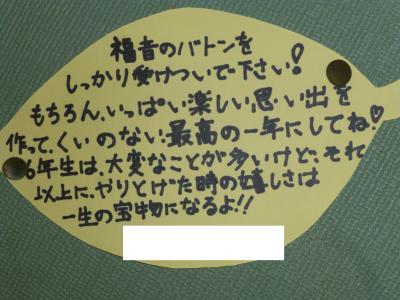 福音のバトンを
しっかり受けついで下さい!
もちろん、いっぱい楽しい思い出を
作って、くいのない最高の一年にしてね!♡
6年生は、大変なことが多いけど、それ
以上に、やりとげた時の嬉しさは
一生の宝物になるよ!!